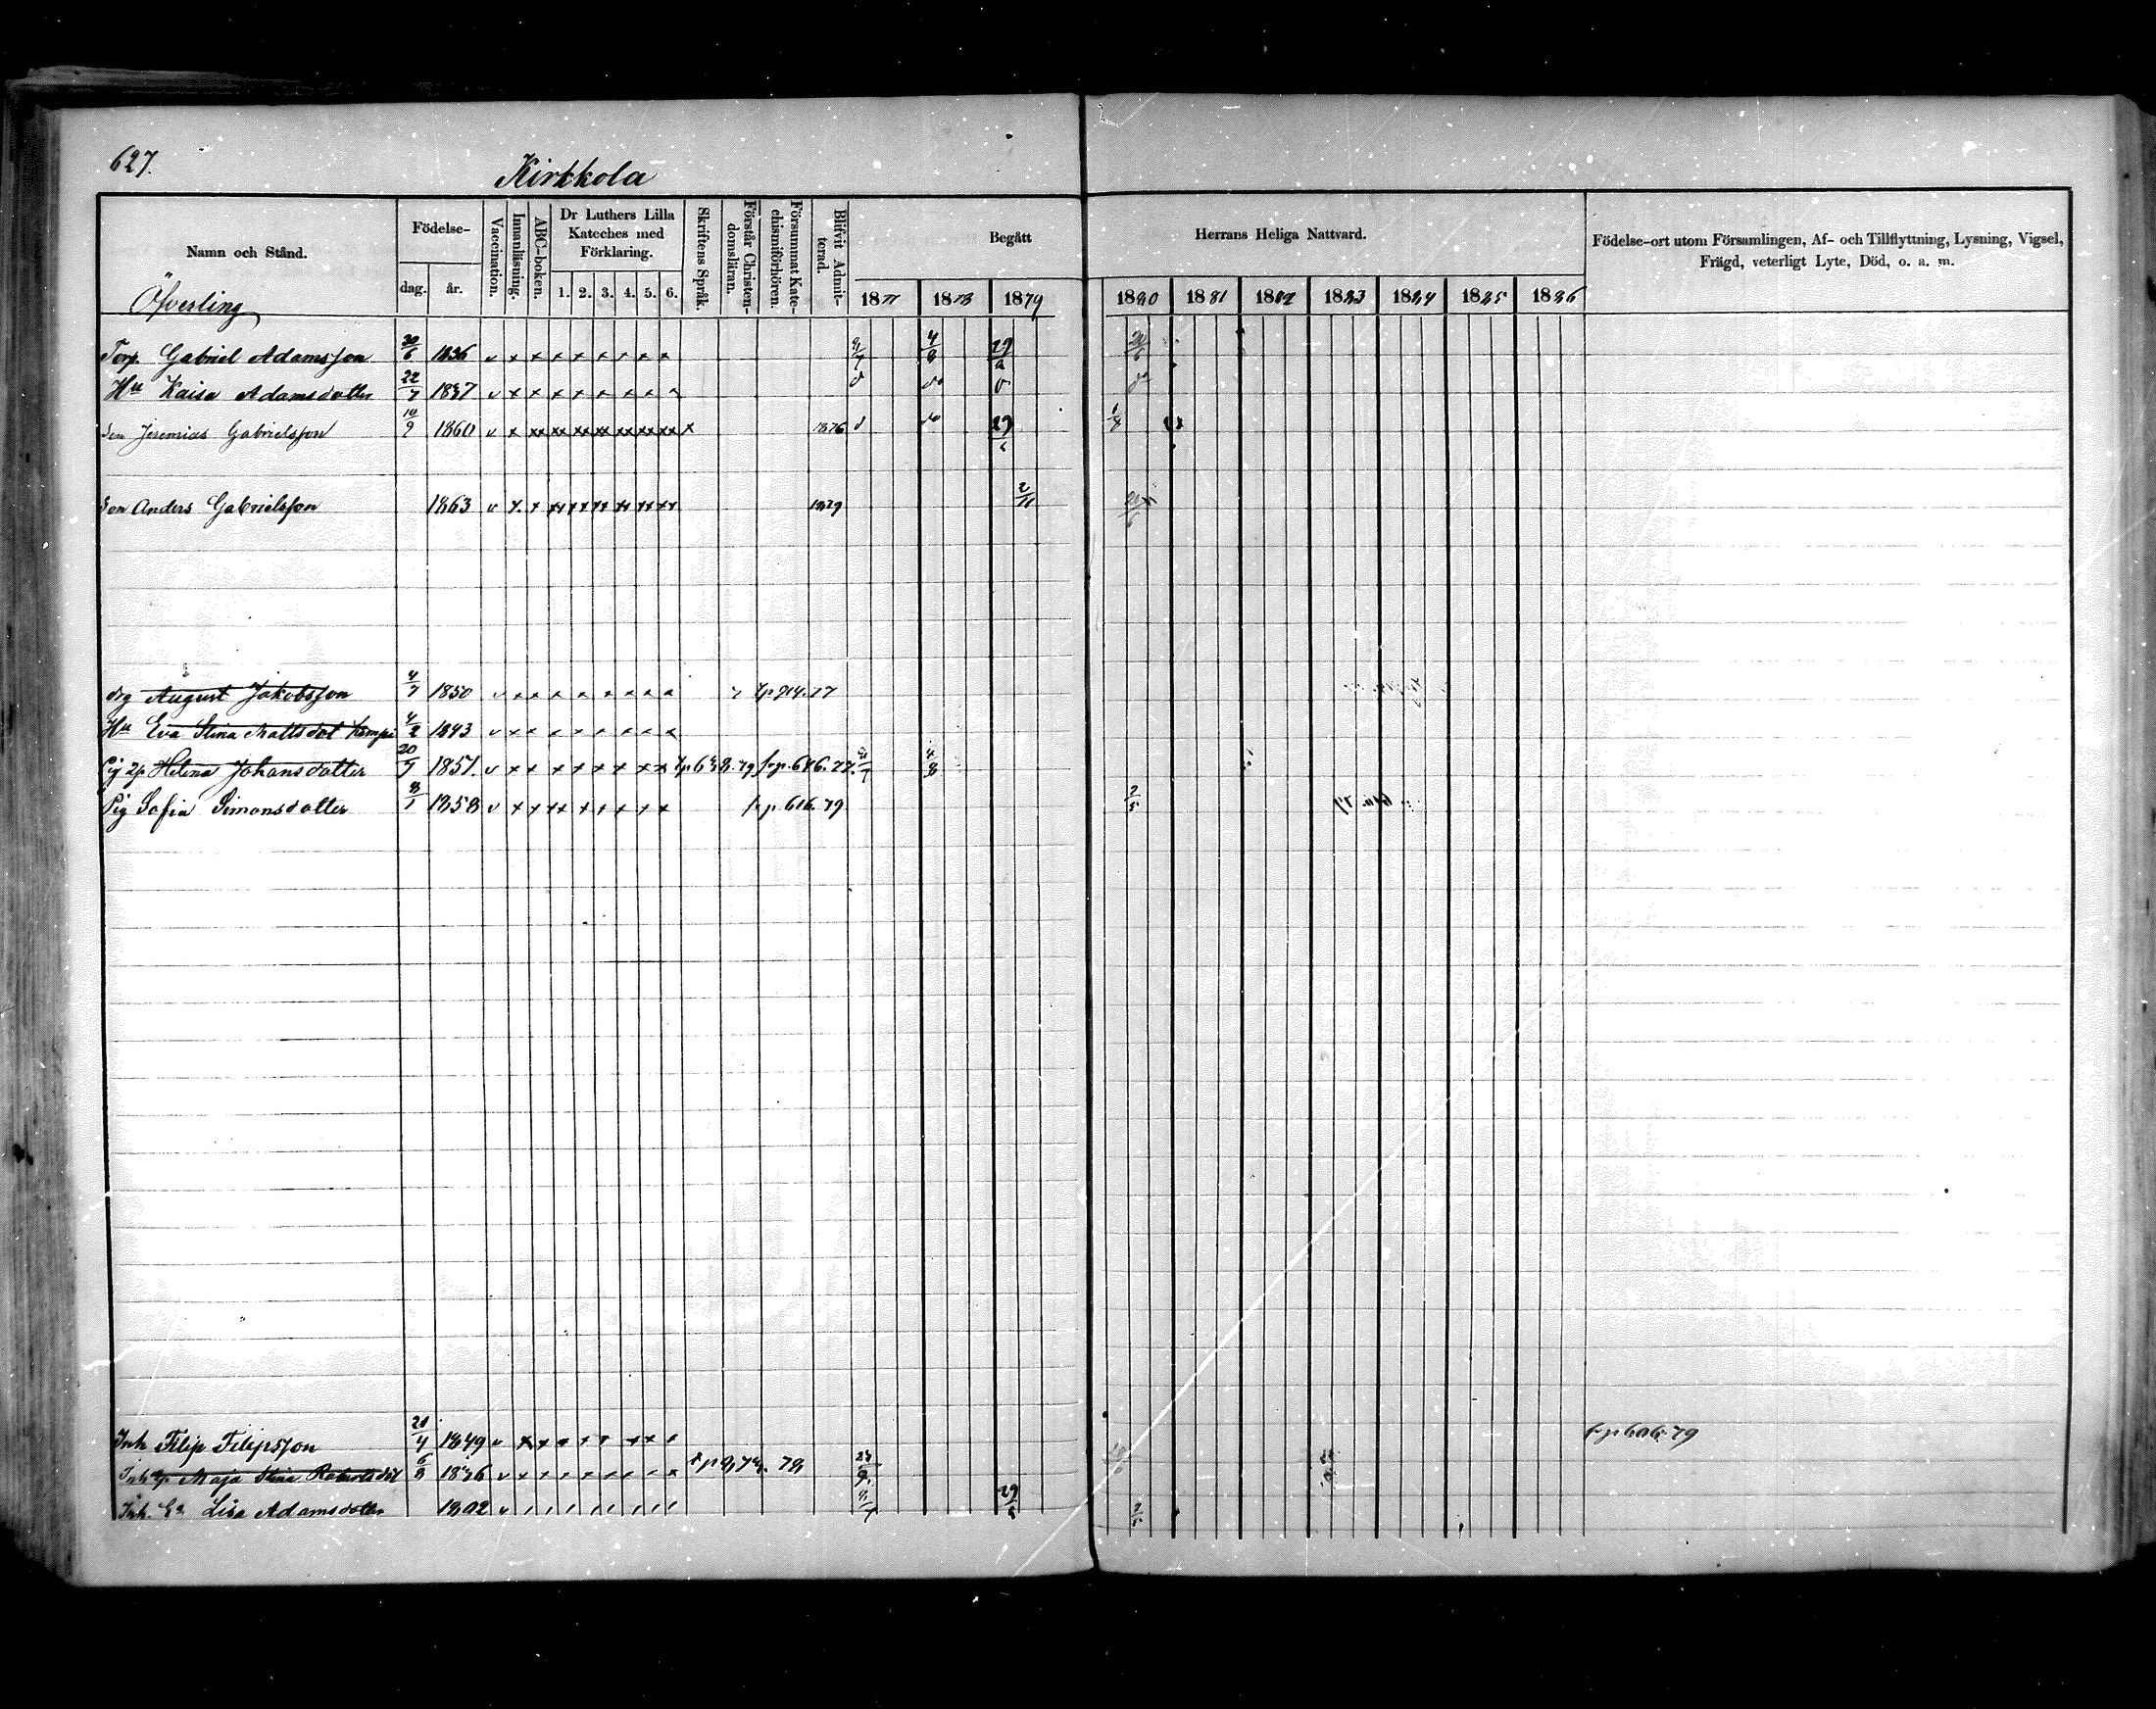 627.
Kirkkola
Namn och Stånd.
Födelse-
dag.
år.
Vaccination.
Innanläsning.
ABC-boken.
Dr Luthers Lilla
Kateches med
Förklaring.
1. 2. 3. 4. 5. 6.
Skriftens Språk.
Förstår Christen-
domsläran.
Försummat Kate-
chismiförhören.
Blifvit Admit-
terad.
Begått
Herrans Heliga Nattvard.
1877 1878 1879 1880 1881 1882 1883 1884 1885 1886
Födelse-ort utom Församlingen, Af- och Tillflyttning, Lysning, Vigsel,
Frägd, veterligt Lyte, Död, o. a. m.
Öfverling
Torp. Gabriel Adamsson 1836 v x x x x x x x x 4/8
Hu Kaisa Adamsdotter 22/7 1837 v x x x x x x x x
Son Jeremias Gabrielsson 10/9 1860 v x xx xx xx xx xx xx xx x 1876
Son Anders Gabrielsson 1863 v x x xx xx xx xx xx xx 1879 2/11
drg August Jakobsson 4/7 1850 v x x x x x x x x
Hu Eva Stina Mattsdot Kempe 4/2 1843 v x x x x x x x x
Pig Helena Johansdotter 20/9 1851. v x x x x x x x x fr p. 616. 77.
Pig Sofia Simonsdotter 8/1 1858 v x x xx x x x x x fr p. 616. 79 2/5
Inh Filip Filipsson 21/4 1849 v x x x x x x x x fr p 606. 79
Inh Maja Stina Robertsdot 6/9 1846 v x x x x x x x x
Inh. Ea Lisa Adamsdotter 1802 v